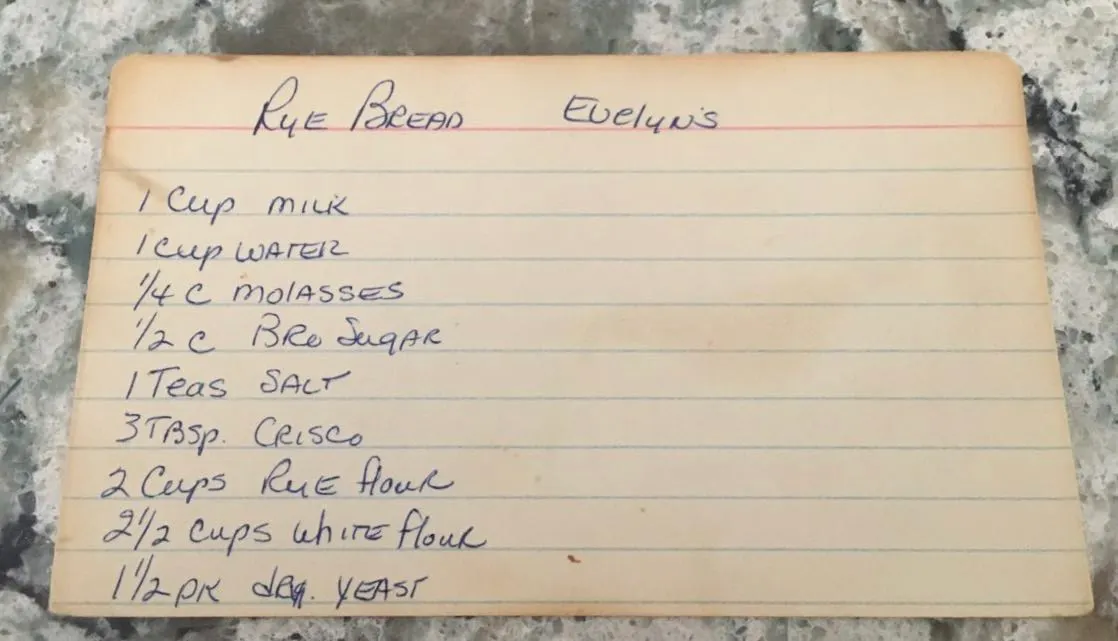 RYE BREAD EVElyN'S
1 Cup MILK
1 Cup WATER
1/4 C MOlASSES
1/2 C BRO SugAR
1 Teas SALT
3 TBSp. CRISCO
2 Cups RYE flouR
2 1/2 Cups WhITE flouR
1 1/2 PK dRy. YEAST